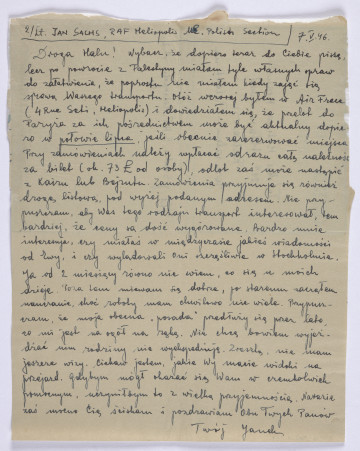 F/Lt. JAN SACHS, RAF Heliopolis ME. Polish Section / 7.V.46.
Droga Halu! Wybacz, że dopiero teraz do Ciebie piszę,
lecz po powrocie z Palestyny miałam tyle własnych spraw
do załatwienia, że poprostu nie miałam kiedy zająć się
sprawą Waszego transportu. Otóż wczoraj byłem w Air France
(4 Rue Seti, Heliopolis) i dowiedziałam się, że przelot do
Paryża za ich pośrednictwem może być aktualny dopie-
ro w połowie lipca, jeśli obecnie zarezerwować miejsca.
Przy zamówieniach należy wpłacać odrazu całą należność
za bilet (ok. 73 £ od osoby), odlot zaś może nastąpić
z Kairu lub Bejrutu. Zamówienia przyjmuje się również
drogą listową, pod wyżej podanym adresem. Nie przy-
puszczam, aby Was tego rodzaju transport interesował, tem
bardziej, że ceny są dość wygórowane. Bardzo mnie
interesuje, czy miałaś w międzyczasie jakieś wiadomości
od Żuwy, i czy wylądowali Oni szczęśliwie w Stockholmie.
Ja od 2 miesięcy równo nie wiem, co się u moich
dzieje. Poza tem miewam się dobrze, po staremu zacząłem
, choć roboty mam chwilowo nie wiele. Przypusz-
czam, że moja obecna "posada" przedłuży się przez lato
co mi jest na ogół na rękę. Nie chcę bowiem wyjeż-
dżać nim rodziny nie wyekspediuję. Zresztą nie mam
jeszcze wizy. Ciekaw jestem, jakie Wy macie widoki na
przejazd. Gdybym mógł okazać się Wam w czemkolwiek
pomocnym, uczyniłbym to z wielką przyjemnością. Narazie
zaś mocno Cię ściskam i pozdrawiam Obu Twych Panów
Twój Janek